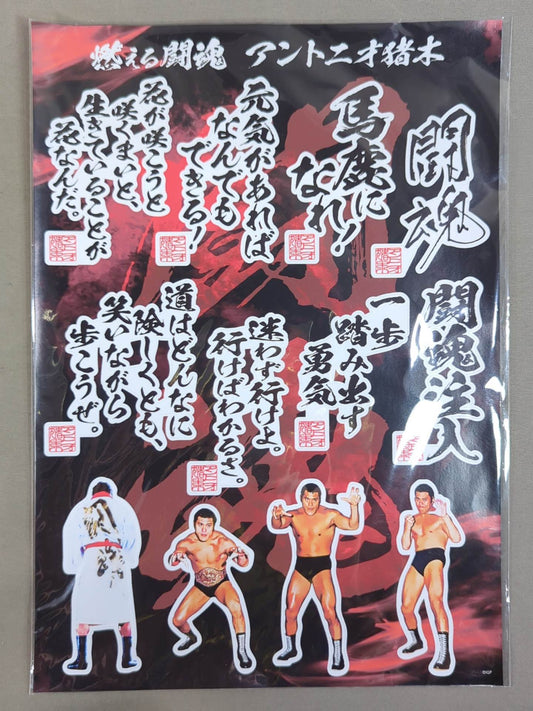 燃える闘魂 アントニオ猪木
闘魂
馬鹿に
なれ!
元気があれば
なんでも
できる!
花が咲こうと
咲くまいと、
生きていることが
花なんだ。
闘魂注入
一歩
踏み出す
勇気
迷わず行けよ。
行けばわかるさ。
道はどんなに
険しくとも、
笑いながら
歩こうぜ。
©IGF